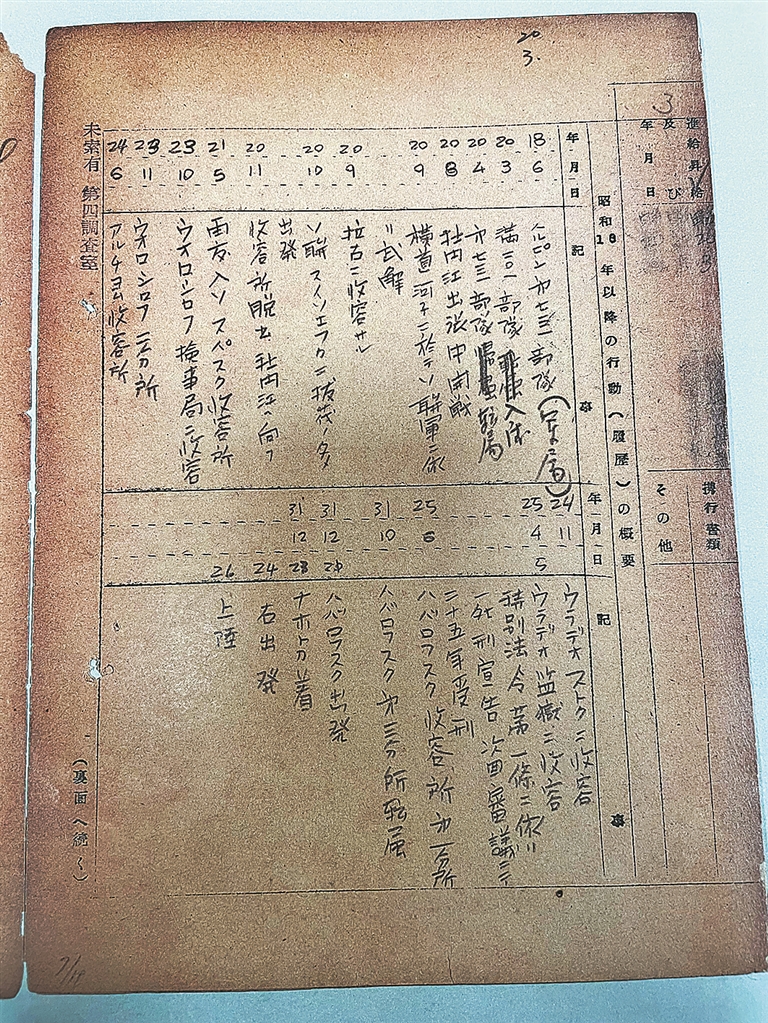 20
3.
及び
年月日
3
携行書類
その他
昭和18年以降の行動(履歴)の概要
年月日 記事
18 6 ハルピン第七三一部隊(軍属)
20 3 部隊 入隊
20 4 第七三一部隊 転属
20 8 牡丹江出張中開戦
20 9 横道河子ニ於テソ聯軍ニ依
リ武解
20 9 拉古ニ収容サル
20 10 ソ聯 ニ ノタメ
出発
20 11 収容所脱出牡丹江ヘ向フ
21 5 再度入ソスパスク収容所
23 10 ウオロシロフ検事局ニ収容
23 11 ウオロシロフ一分所
24 6 アルチヨム収容所
年月日 記事
24 11 ウラデオストクニ収容
25 4 5 ウラデオ監獄ニ収容
特別法令第一條ニ依リ
死刑宣告次回審議ニテ
二十五年受刑
25 6 ハバロフスク収容所第一分所
31 10 ハバロフスク第三分所転属
31 12 21 ハバロフスク出発
31 12 23 ナホトカ着
24 右出発
26 上陸
(裏面へ続く)
未索有 第四調査室
7/19